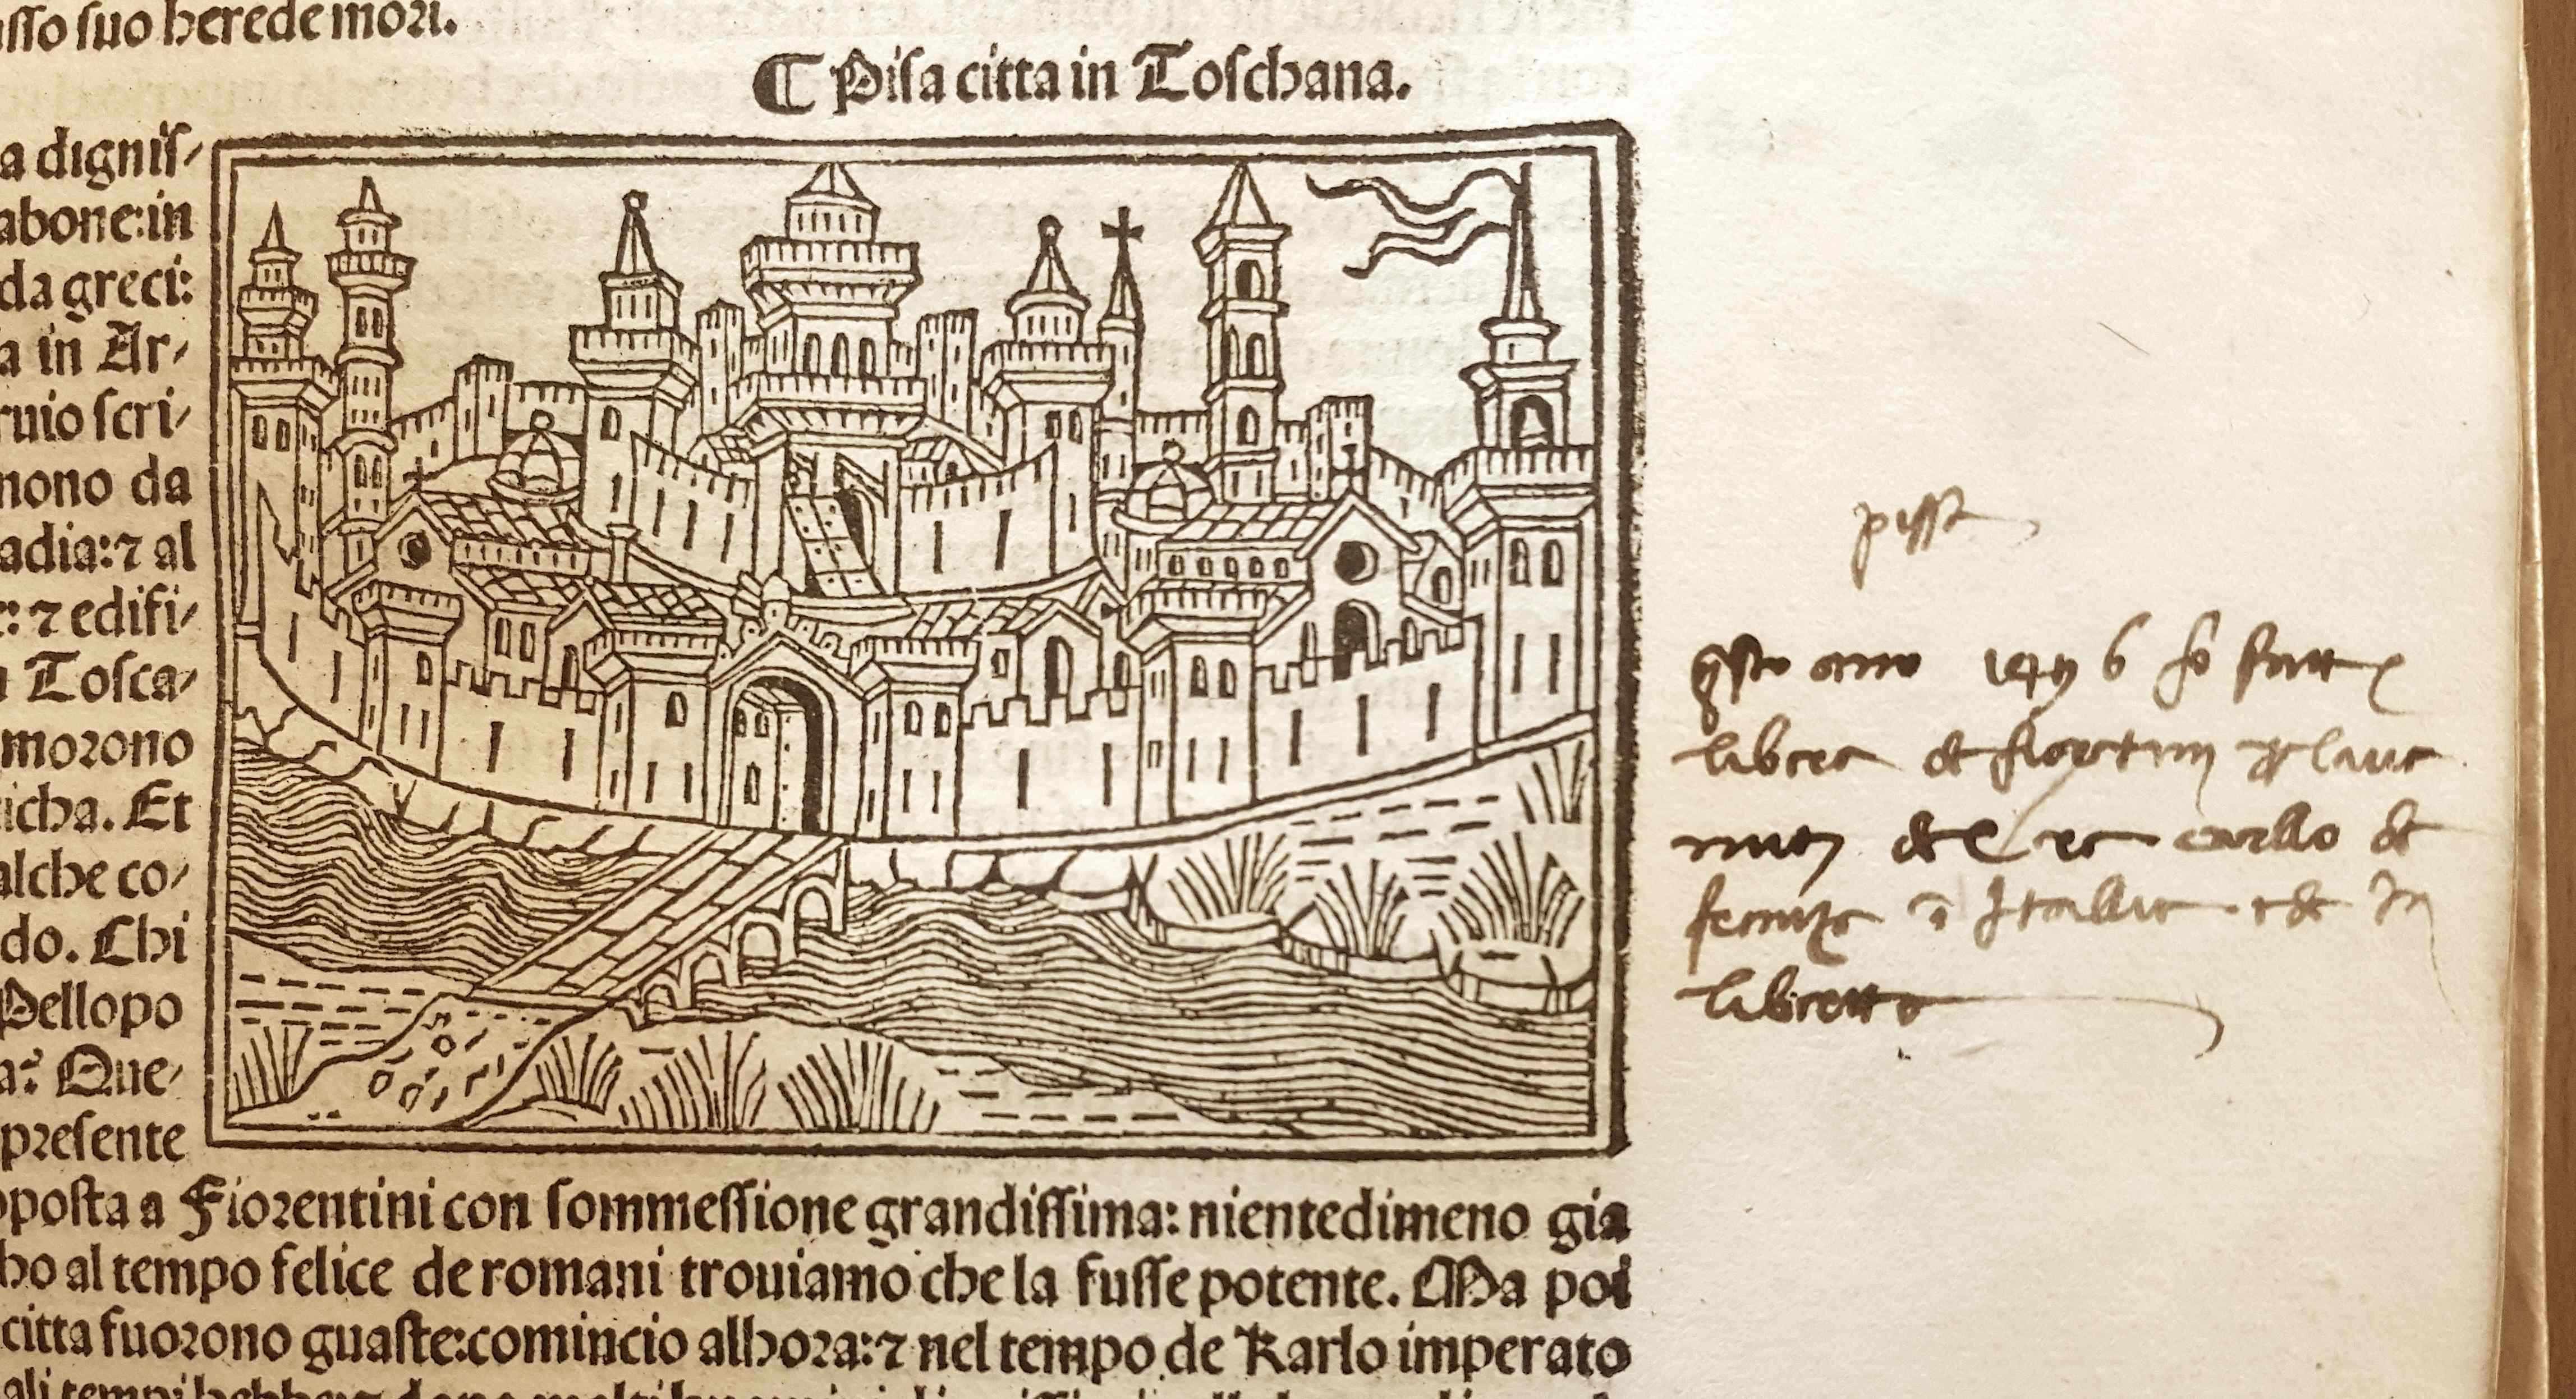 sso suo herede mori.
Pisa citta in Toschana.
a dignis/
abone:in
da greci:
a in Ar/
ruio scri/
nono da
adia:⁊ al
: ⁊ edifi/
Tosca/
morono
icha. Et
alche co/
do. Chi
Pellopo
a? Que/
presente
posta a Fiorentini con sommessione grandissima: nientedimeno gia
ho al tempo felice de romani trouiamo che la fusse potente. Ma poi
citta fuorono guaste:comincio alhora:⁊ nel tempo de Karlo imperato
pissa
qsto ano 1496 fo fatta
libera
carlo de
Italia
libretto